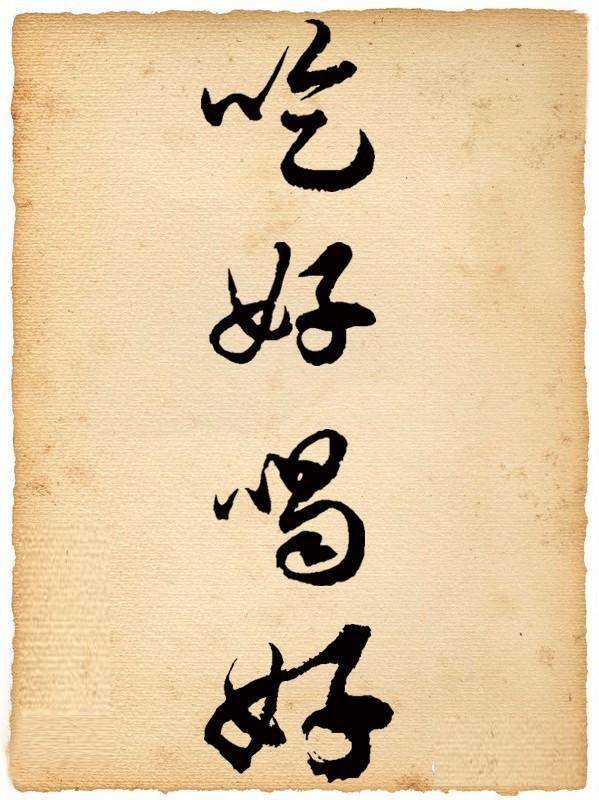 吃好喝好